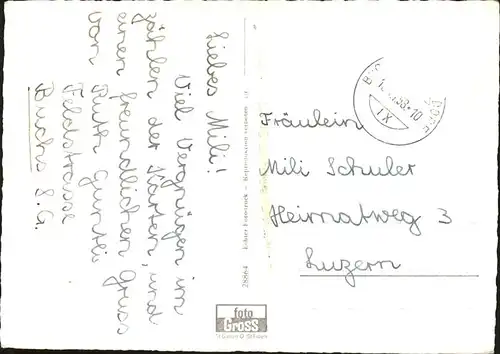 Liebes Mili!
Viel Vergnügen im
zählen der Karten, und
einen freundlichen Gruss
von Ruth
Feldstrasse
Buchs S.G.
28864
Echter Fotodruck — Reproduktion verboten
foto
Gross
Fräulein
Mili Schuler
Heimatweg 3
Luzern